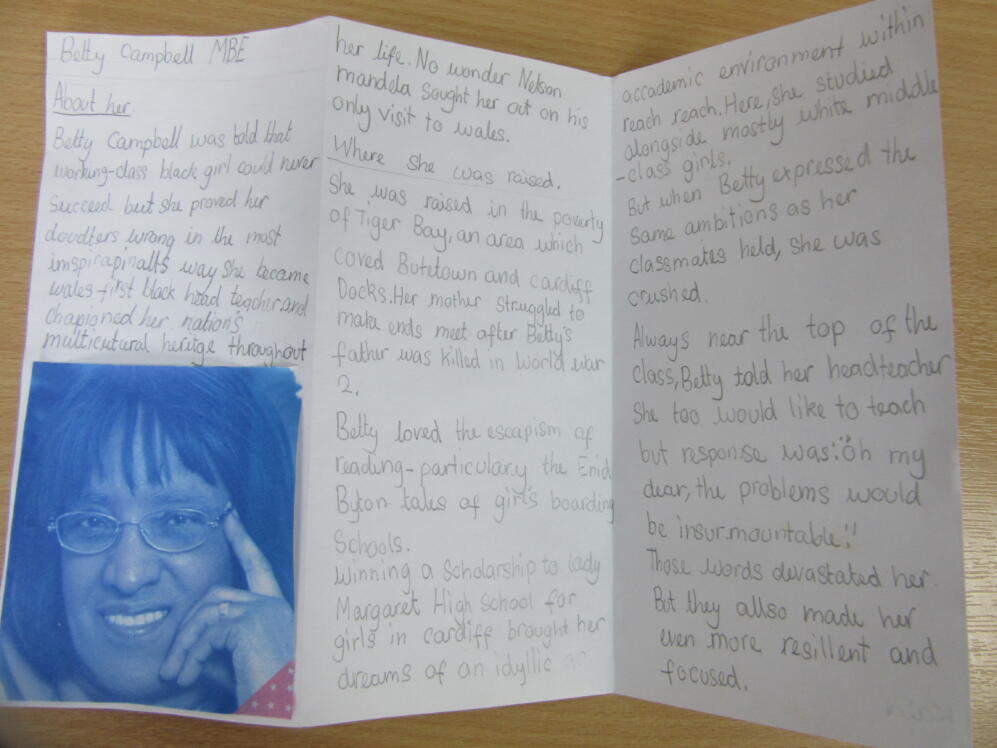 Betty Campbell MBE
About her.
Betty Campbell was told that
working-class black girl could never
Succeed but she proved her
doudters wrong in the most
imspirapinalts way she became
wales first black head teacher and
chapioned her nation's
multicutural heritge throughout
her life. No wonder Nelson
mandela Sought her out on his
only visit to wales.
Where she was raised.
She was raised in the poverty
of Tiger Bay, an area which
coved Butetown and cardiff
Docks. Her mother Struggled to
make ends meet after Betty's
father was killed in world war
2.
Betty loved the escapism of
reading-particulary the Enid
Byton tales of girl's boarding
Schools.
winning a Scholarship to lady
Margaret High School for
girls in cardiff brought her
dreams of an idyllic
accademic environment within
reach reach. Here, she studied
alongside mostly white middle
-class girls.
But when Betty expressed the
Same ambitions as her
classmates held, she was
crushed.
Always near the top of the
class, Betty told her headteacher
She too would like to teach
but response was: "oh my
dear, the problems would
be insurmountable!"
Those words devastated her.
But they allso made her
even more resillent and
focused.